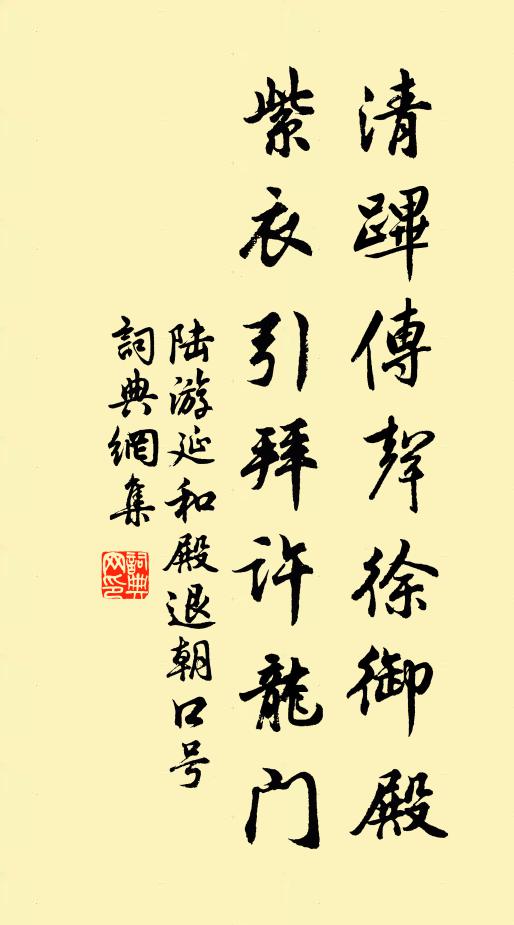 清蹕傳聲徐御殿
紫衣引拜許龍门
陆游延和殿退朝口号
詞典網集
詞典网印